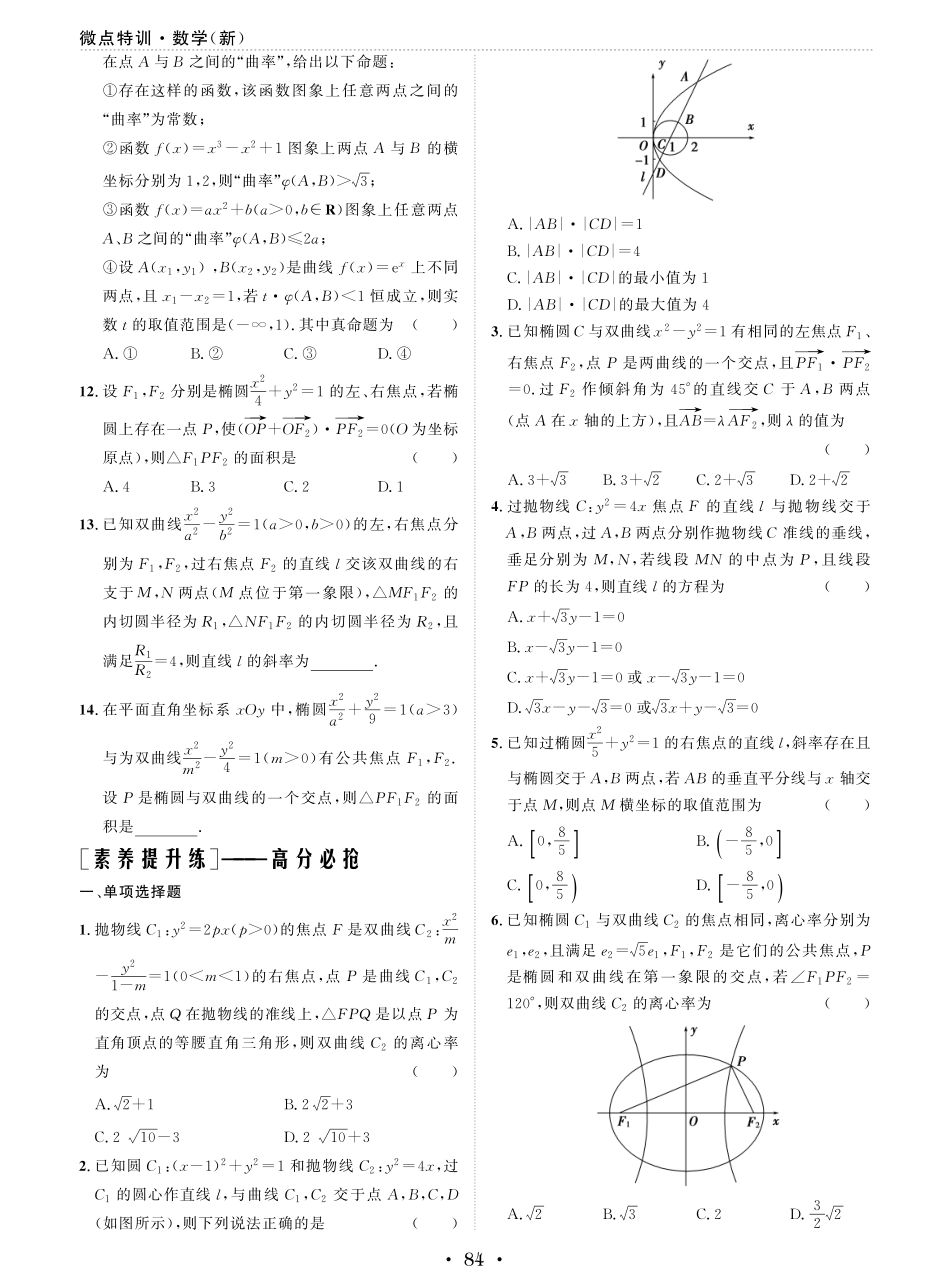 微点特训·数学(新)
在点 A 与 B 之间的“曲率”,给出以下命题:
①存在这样的函数,该函数图象上任意两点之间的
“曲率”为常数;
②函数 f(x)=x³-x²+1 图象上两点 A 与 B 的横
坐标分别为 1,2,则“曲率”φ(A,B)>√3;
③函数 f(x)=ax²+b(a>0,b∈R)图象上任意两点
A、B 之间的“曲率”φ(A,B)≤2a;
④设 A(x₁,y₁),B(x₂,y₂)是曲线 f(x)=eˣ 上不同
两点,且 x₁-x₂=1,若 t·φ(A,B)<1 恒成立,则实
数 t 的取值范围是(-∞,1).其中真命题为 (  )
A.① B.② C.③ D.④
12.设 F₁,F₂ 分别是椭圆x²/4+y²=1 的左、右焦点,若椭
圆上存在一点 P,使(OP→+OF₂→)·PF₂→=0(O 为坐标
原点),则△F₁PF₂ 的面积是 (  )
A.4 B.3 C.2 D.1
13.已知双曲线x²/a²-y²/b²=1(a>0,b>0)的左,右焦点分
别为 F₁,F₂,过右焦点 F₂ 的直线 l 交该双曲线的右
支于 M,N 两点(M 点位于第一象限),△MF₁F₂ 的
内切圆半径为 R₁,△NF₁F₂ 的内切圆半径为 R₂,且
满足R₁/R₂=4,则直线 l 的斜率为________.
14.在平面直角坐标系 xOy 中,椭圆x²/a²+y²/9=1(a>3)
与为双曲线x²/m²-y²/4=1(m>0)有公共焦点 F₁,F₂.
设 P 是椭圆与双曲线的一个交点,则△PF₁F₂ 的面
积是________.
[素养提升练]——高分必抢
一、单项选择题
1.抛物线 C₁:y²=2px(p>0)的焦点 F 是双曲线 C₂:x²/m
-y²/(1-m)=1(0<m<1)的右焦点,点 P 是曲线 C₁,C₂
的交点,点 Q 在抛物线的准线上,△FPQ 是以点 P 为
直角顶点的等腰直角三角形,则双曲线 C₂ 的离心率
为 (  )
A.√2+1 B.2√2+3
C.2√10-3 D.2√10+3
2.已知圆 C₁:(x-1)²+y²=1 和抛物线 C₂:y²=4x,过
C₁ 的圆心作直线 l,与曲线 C₁,C₂ 交于点 A,B,C,D
(如图所示),则下列说法正确的是 (  )
y
A
1 B x
O C 1 2
-1
l D
A.|AB|·|CD|=1
B.|AB|·|CD|=4
C.|AB|·|CD|的最小值为 1
D.|AB|·|CD|的最大值为 4
3.已知椭圆 C 与双曲线 x²-y²=1 有相同的左焦点 F₁、
右焦点 F₂,点 P 是两曲线的一个交点,且PF₁→·PF₂→
=0.过 F₂ 作倾斜角为 45°的直线交 C 于 A,B 两点
(点 A 在 x 轴的上方),且AB→=λAF₂→,则 λ 的值为
(  )
A.3+√3 B.3+√2 C.2+√3 D.2+√2
4.过抛物线 C:y²=4x 焦点 F 的直线 l 与抛物线交于
A,B 两点,过 A,B 两点分别作抛物线 C 准线的垂线,
垂足分别为 M,N,若线段 MN 的中点为 P,且线段
FP 的长为 4,则直线 l 的方程为 (  )
A.x+√3y-1=0
B.x-√3y-1=0
C.x+√3y-1=0 或 x-√3y-1=0
D.√3x-y-√3=0 或√3x+y-√3=0
5.已知过椭圆x²/5+y²=1 的右焦点的直线 l,斜率存在且
与椭圆交于 A,B 两点,若 AB 的垂直平分线与 x 轴交
于点 M,则点 M 横坐标的取值范围为 (  )
A.[0,8/5] B.(-8/5,0]
C.[0,8/5) D.[-8/5,0)
6.已知椭圆 C₁ 与双曲线 C₂ 的焦点相同,离心率分别为
e₁,e₂,且满足 e₂=√5e₁,F₁,F₂ 是它们的公共焦点,P
是椭圆和双曲线在第一象限的交点,若∠F₁PF₂=
120°,则双曲线 C₂ 的离心率为 (  )
y
P
F₁ O F₂ x
A.√2 B.√3 C.2 D.3/2√2
· 84 ·